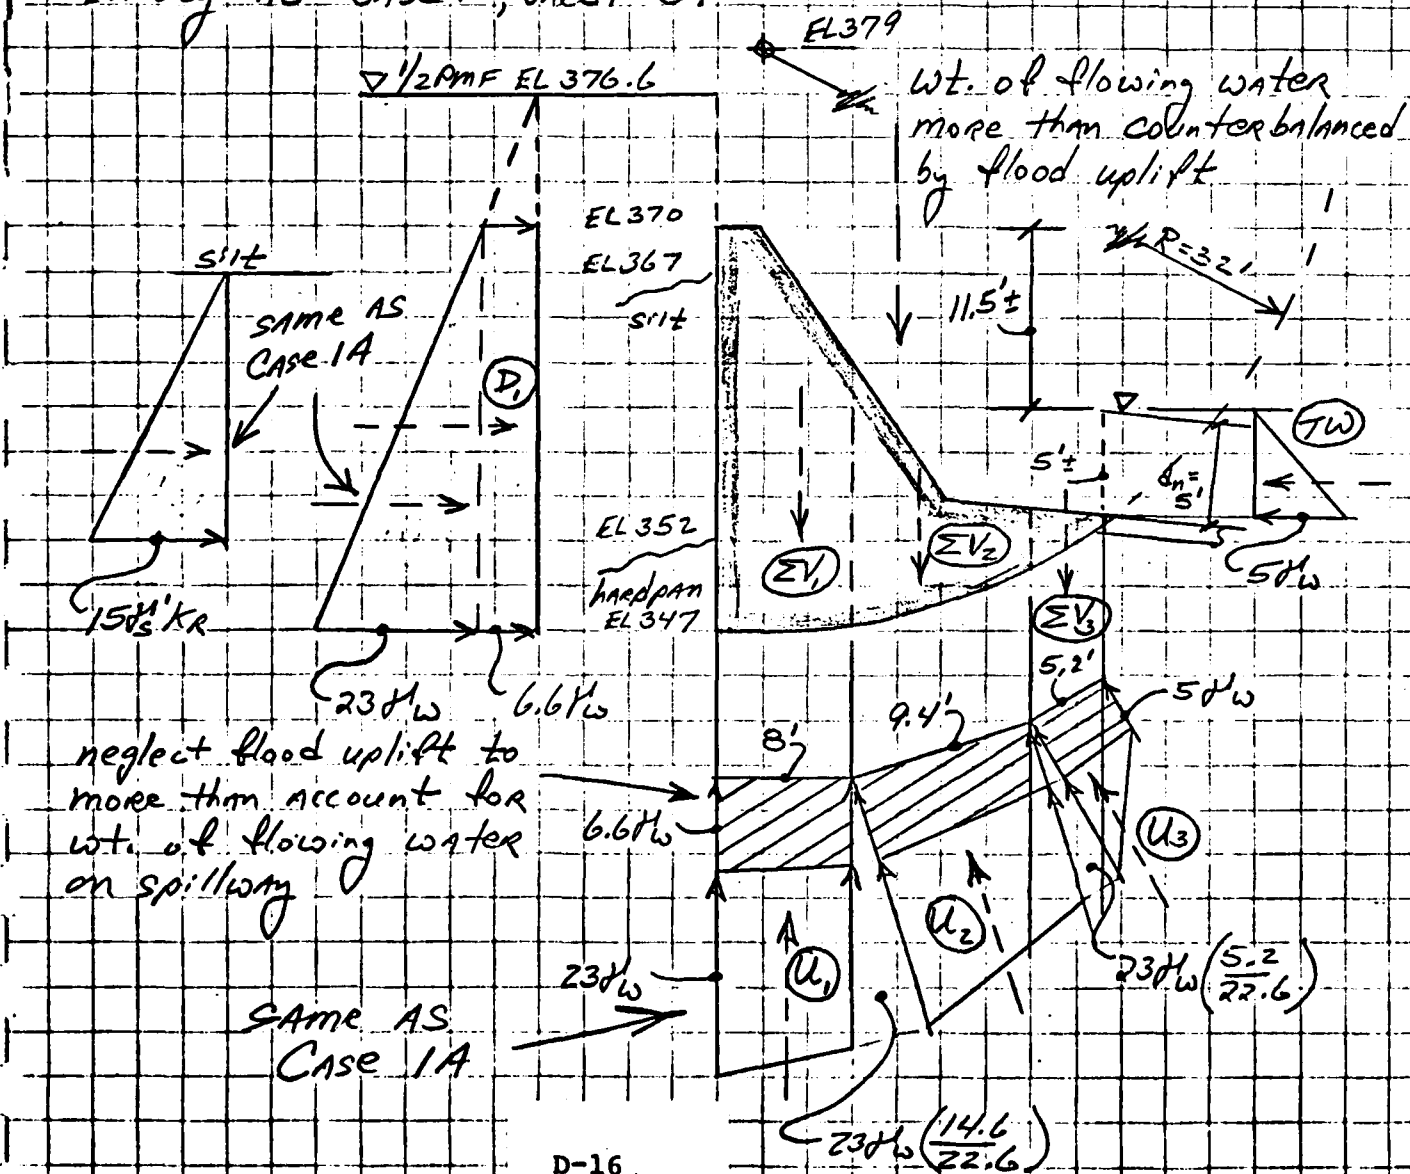 EL379
▽ 1/2 PMF EL 376.6
wt. of flowing water
more than counterbalanced
by flood uplift
EL 370
silt
EL 367
R=32'
SAME AS
Case 1A
silt
11.5'±
D1
TW
5'±
dn=
5'
EL 352
ΣV1
ΣV2
hardpan
EL 347
5γw
15γs'KR
ΣV3
5.2'
23γw
6.6γw
5γw
9.4'
8'
neglect flood uplift to
more than account for
wt. of flowing water
on spillway
6.6γw
U3
U2
23γw
U1
23γw(5.2/22.6)
SAME AS
Case 1A
23γw(14.6/22.6)
D-16